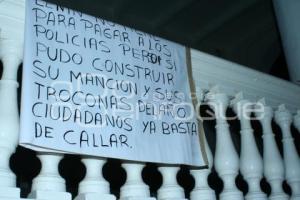 PARA PAGAR A LOS
POLICIAS PERO SI
PUDO CONSTRUIR
SU MANCION Y SUS
TROCONAS PELARIO
CIUDADANOS YA BASTA
DE CALLAR.